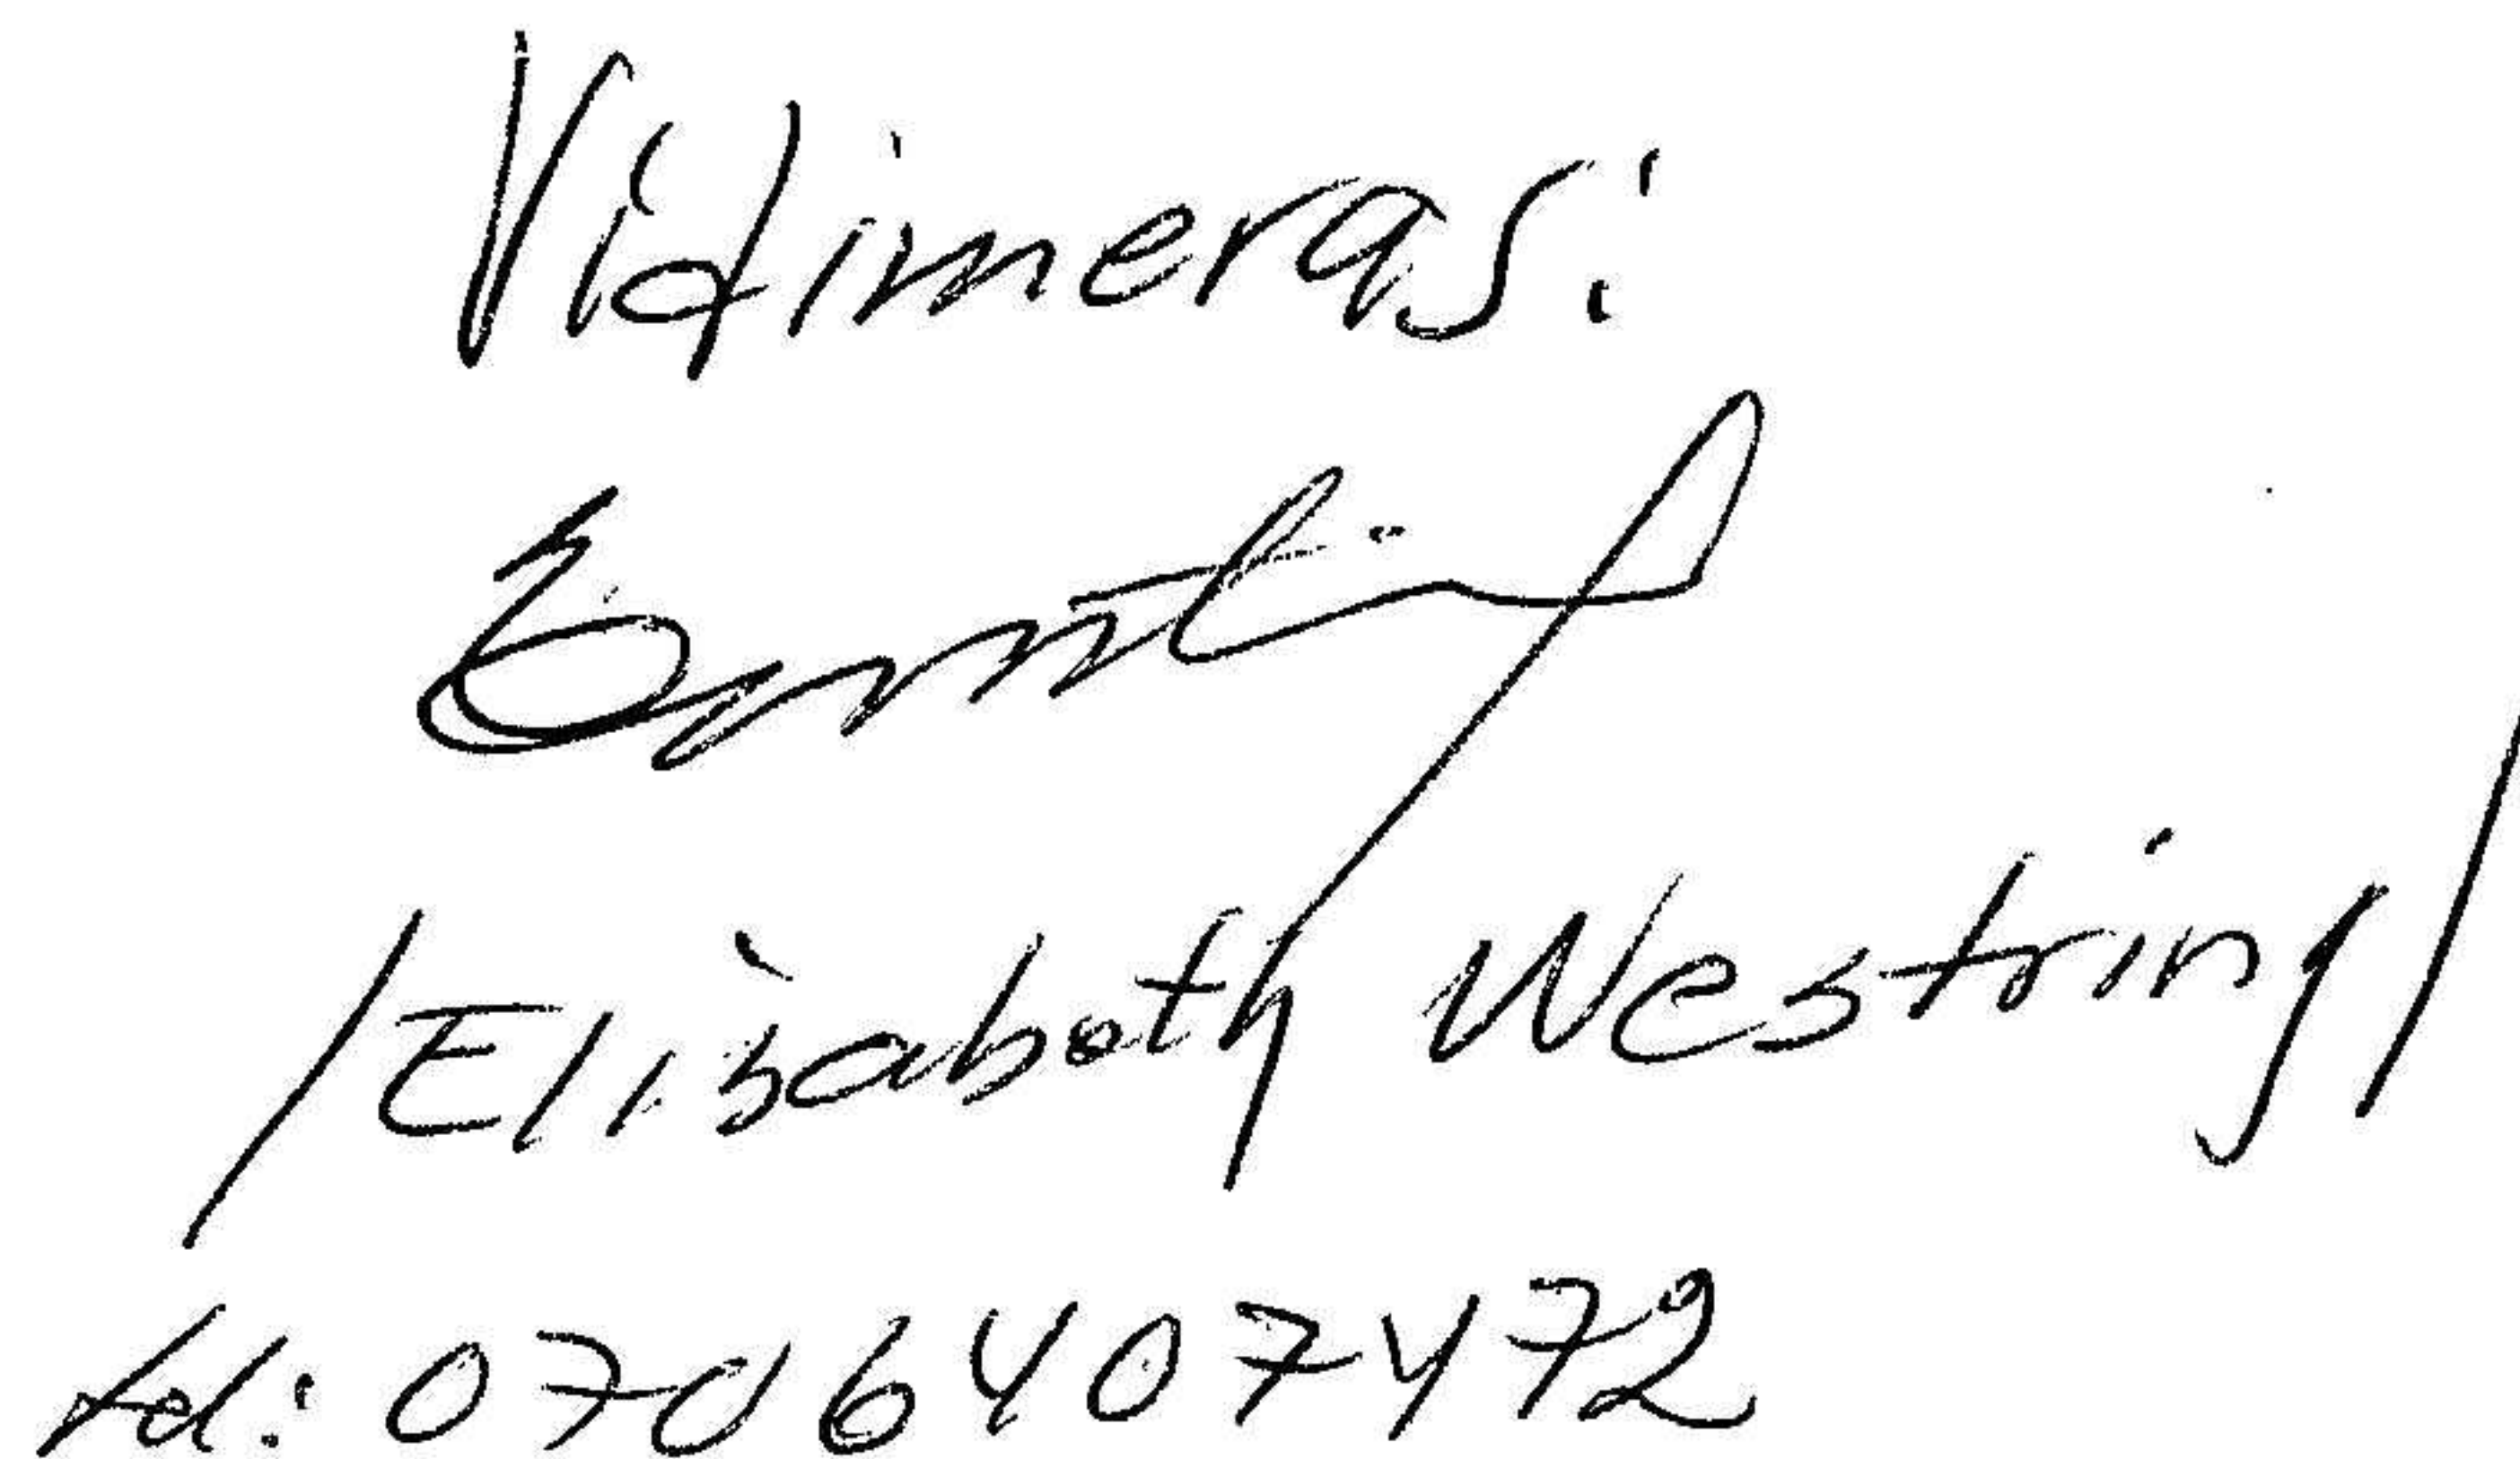 Vidimeras:
/Elisabeth Westring/
tel: 0706407472